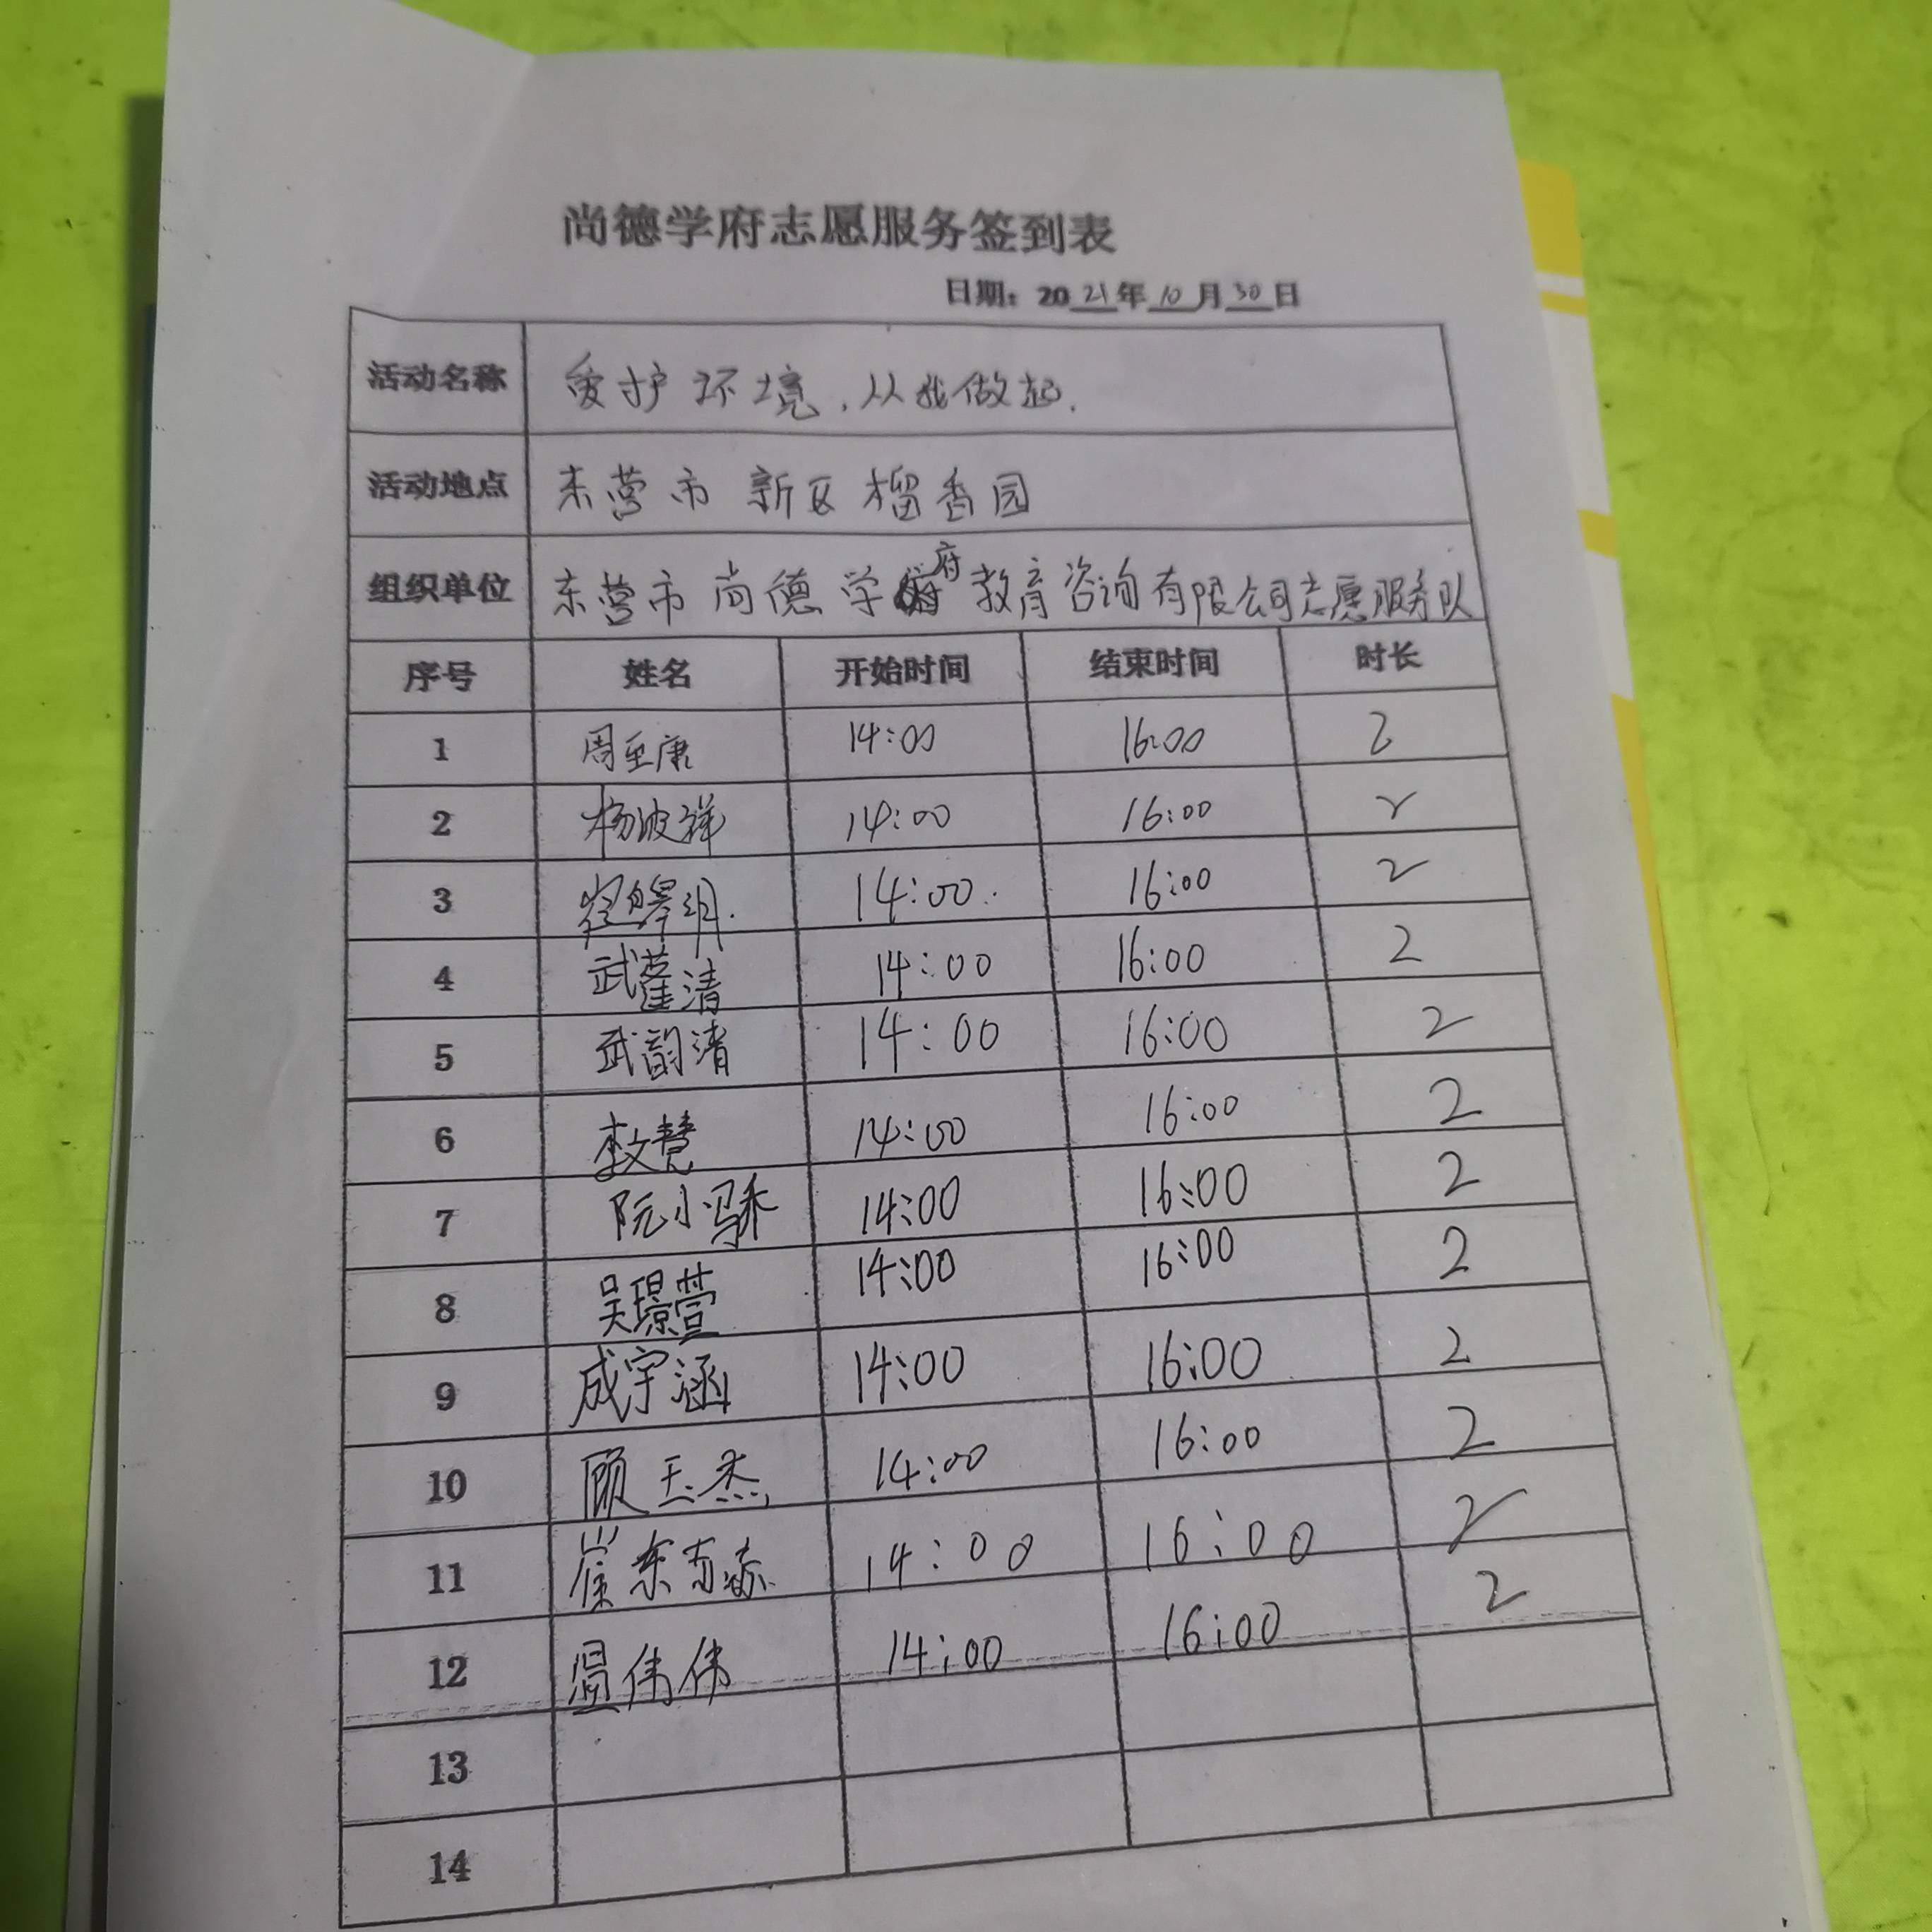 尚德学府志愿服务签到表
日期：2021年10月30日
活动名称 爱护环境，从我做起.
活动地点 东营市新区榴香园
组织单位 东营市尚德学府教育咨询有限公司志愿服务队
序号 姓名 开始时间 结束时间 时长
1 周至康 14:00 16:00 2
2 杨波祥 14:00 16:00 2
3 14:00 16:00 2
4 武 清 14:00 16:00 2
5 武韵清 14:00 16:00 2
6 李文慧 14:00 16:00 2
7 阮小 14:00 16:00 2
8 吴璟萱 14:00 16:00 2
9 成宇涵 14:00 16:00 2
10 顾玉杰 14:00 16:00 2
11 崔东 14:00 16:00 2
12 温伟伟 14:00 16:00 2
13
14